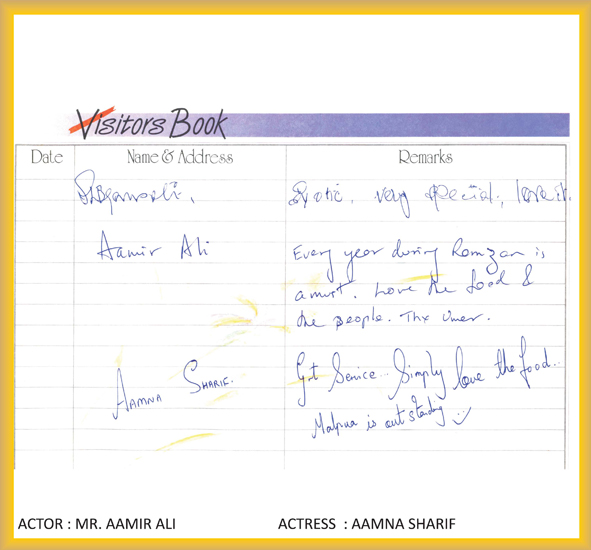 Visitors Book
Date Name & Address Remarks
Exotic, very special, love it.
Aamir Ali Every year during Ramzan is
a must. Love the food &
the people. Thx Umer.
Aamna Sharif. Gt Service.. Simply love the food..
Malpua is outstanding
ACTOR : MR. AAMIR ALI ACTRESS : AAMNA SHARIF